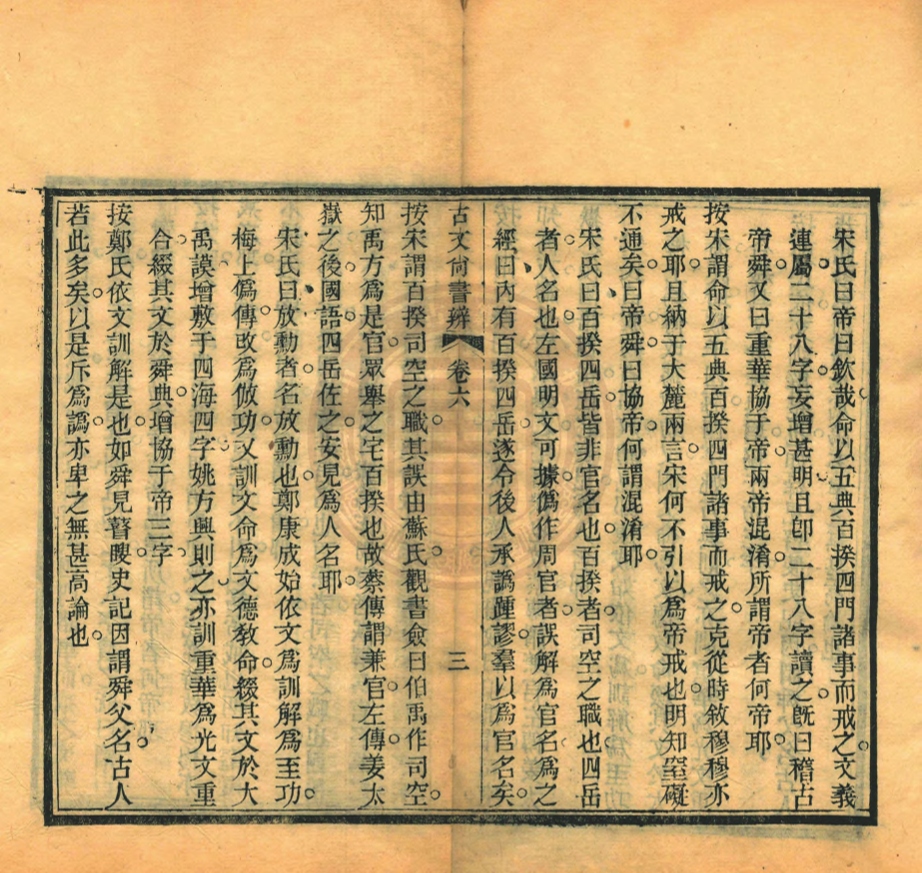 宋氏曰帝曰欽哉命以五典百揆四門諸事而戒之文義
連屬二十八字妄增甚明且卽二十八字讀之旣曰稽古
帝舜又曰重華協于帝兩帝混淆所謂帝者何帝耶
按宋謂命以五典百揆四門諸事而戒之克從時敘穆穆亦
戒之耶且納于大麓兩言宋何不引以爲帝戒也明知窒礙
不通矣曰帝舜曰協帝何謂混淆耶
宋氏曰百揆四岳皆非官名也百揆者司空之職也四岳
者人名也左國明文可據僞作周官者誤解爲官名爲之
經曰內有百揆四岳遂令後人承譌踵謬羣以爲官名矣
古文尙書辨 卷六 三
按宋謂百揆司空之職其誤由蘇氏觀書僉曰伯禹作司空
知禹方爲是官眾舉之宅百揆也故蔡傳謂兼官左傳姜太
嶽之後國語四岳佐之安見爲人名耶
宋氏曰放勳者名放勳也鄭康成始依文爲訓解爲至功
梅上僞傳改爲倣功又訓文命爲文德敎命綴其文於大
禹謨增敷于四海四字姚方興則之亦訓重華爲光文重
合綴其文於舜典增協于帝三字
按鄭氏依文訓解是也如舜見瞽瞍史記因謂舜父名古人
若此多矣以是斥爲譌亦卑之無甚高論也